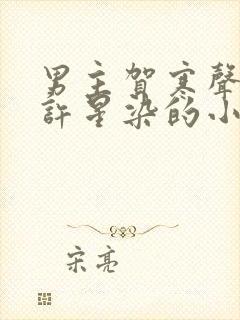 男主賀寒聲
許星染的小
宋亮